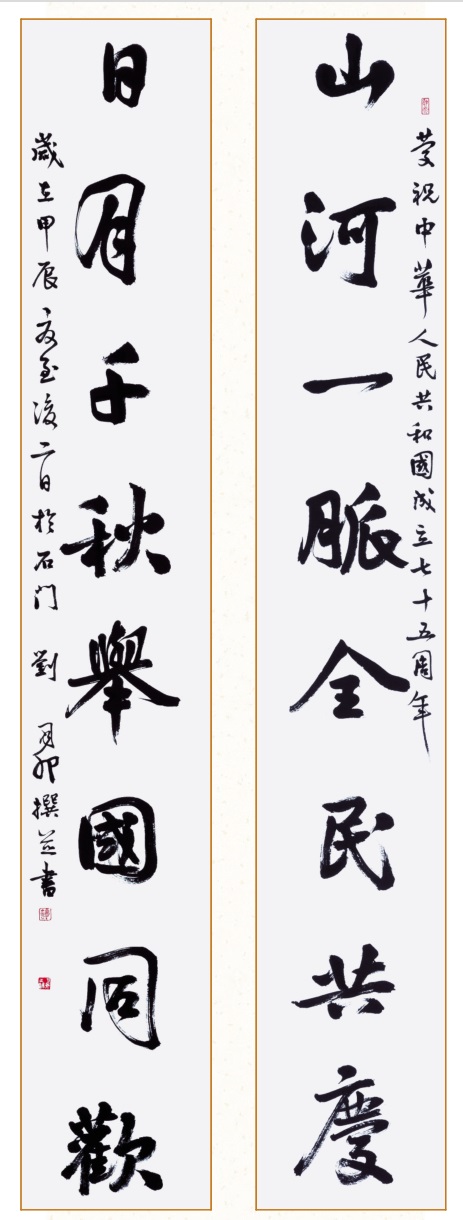 慶祝中華人民共和國成立七十五周年
山河一脈全民共慶
日月千秋舉國同歡
歲在甲辰夏至後二日於石门 劉月卯撰並書